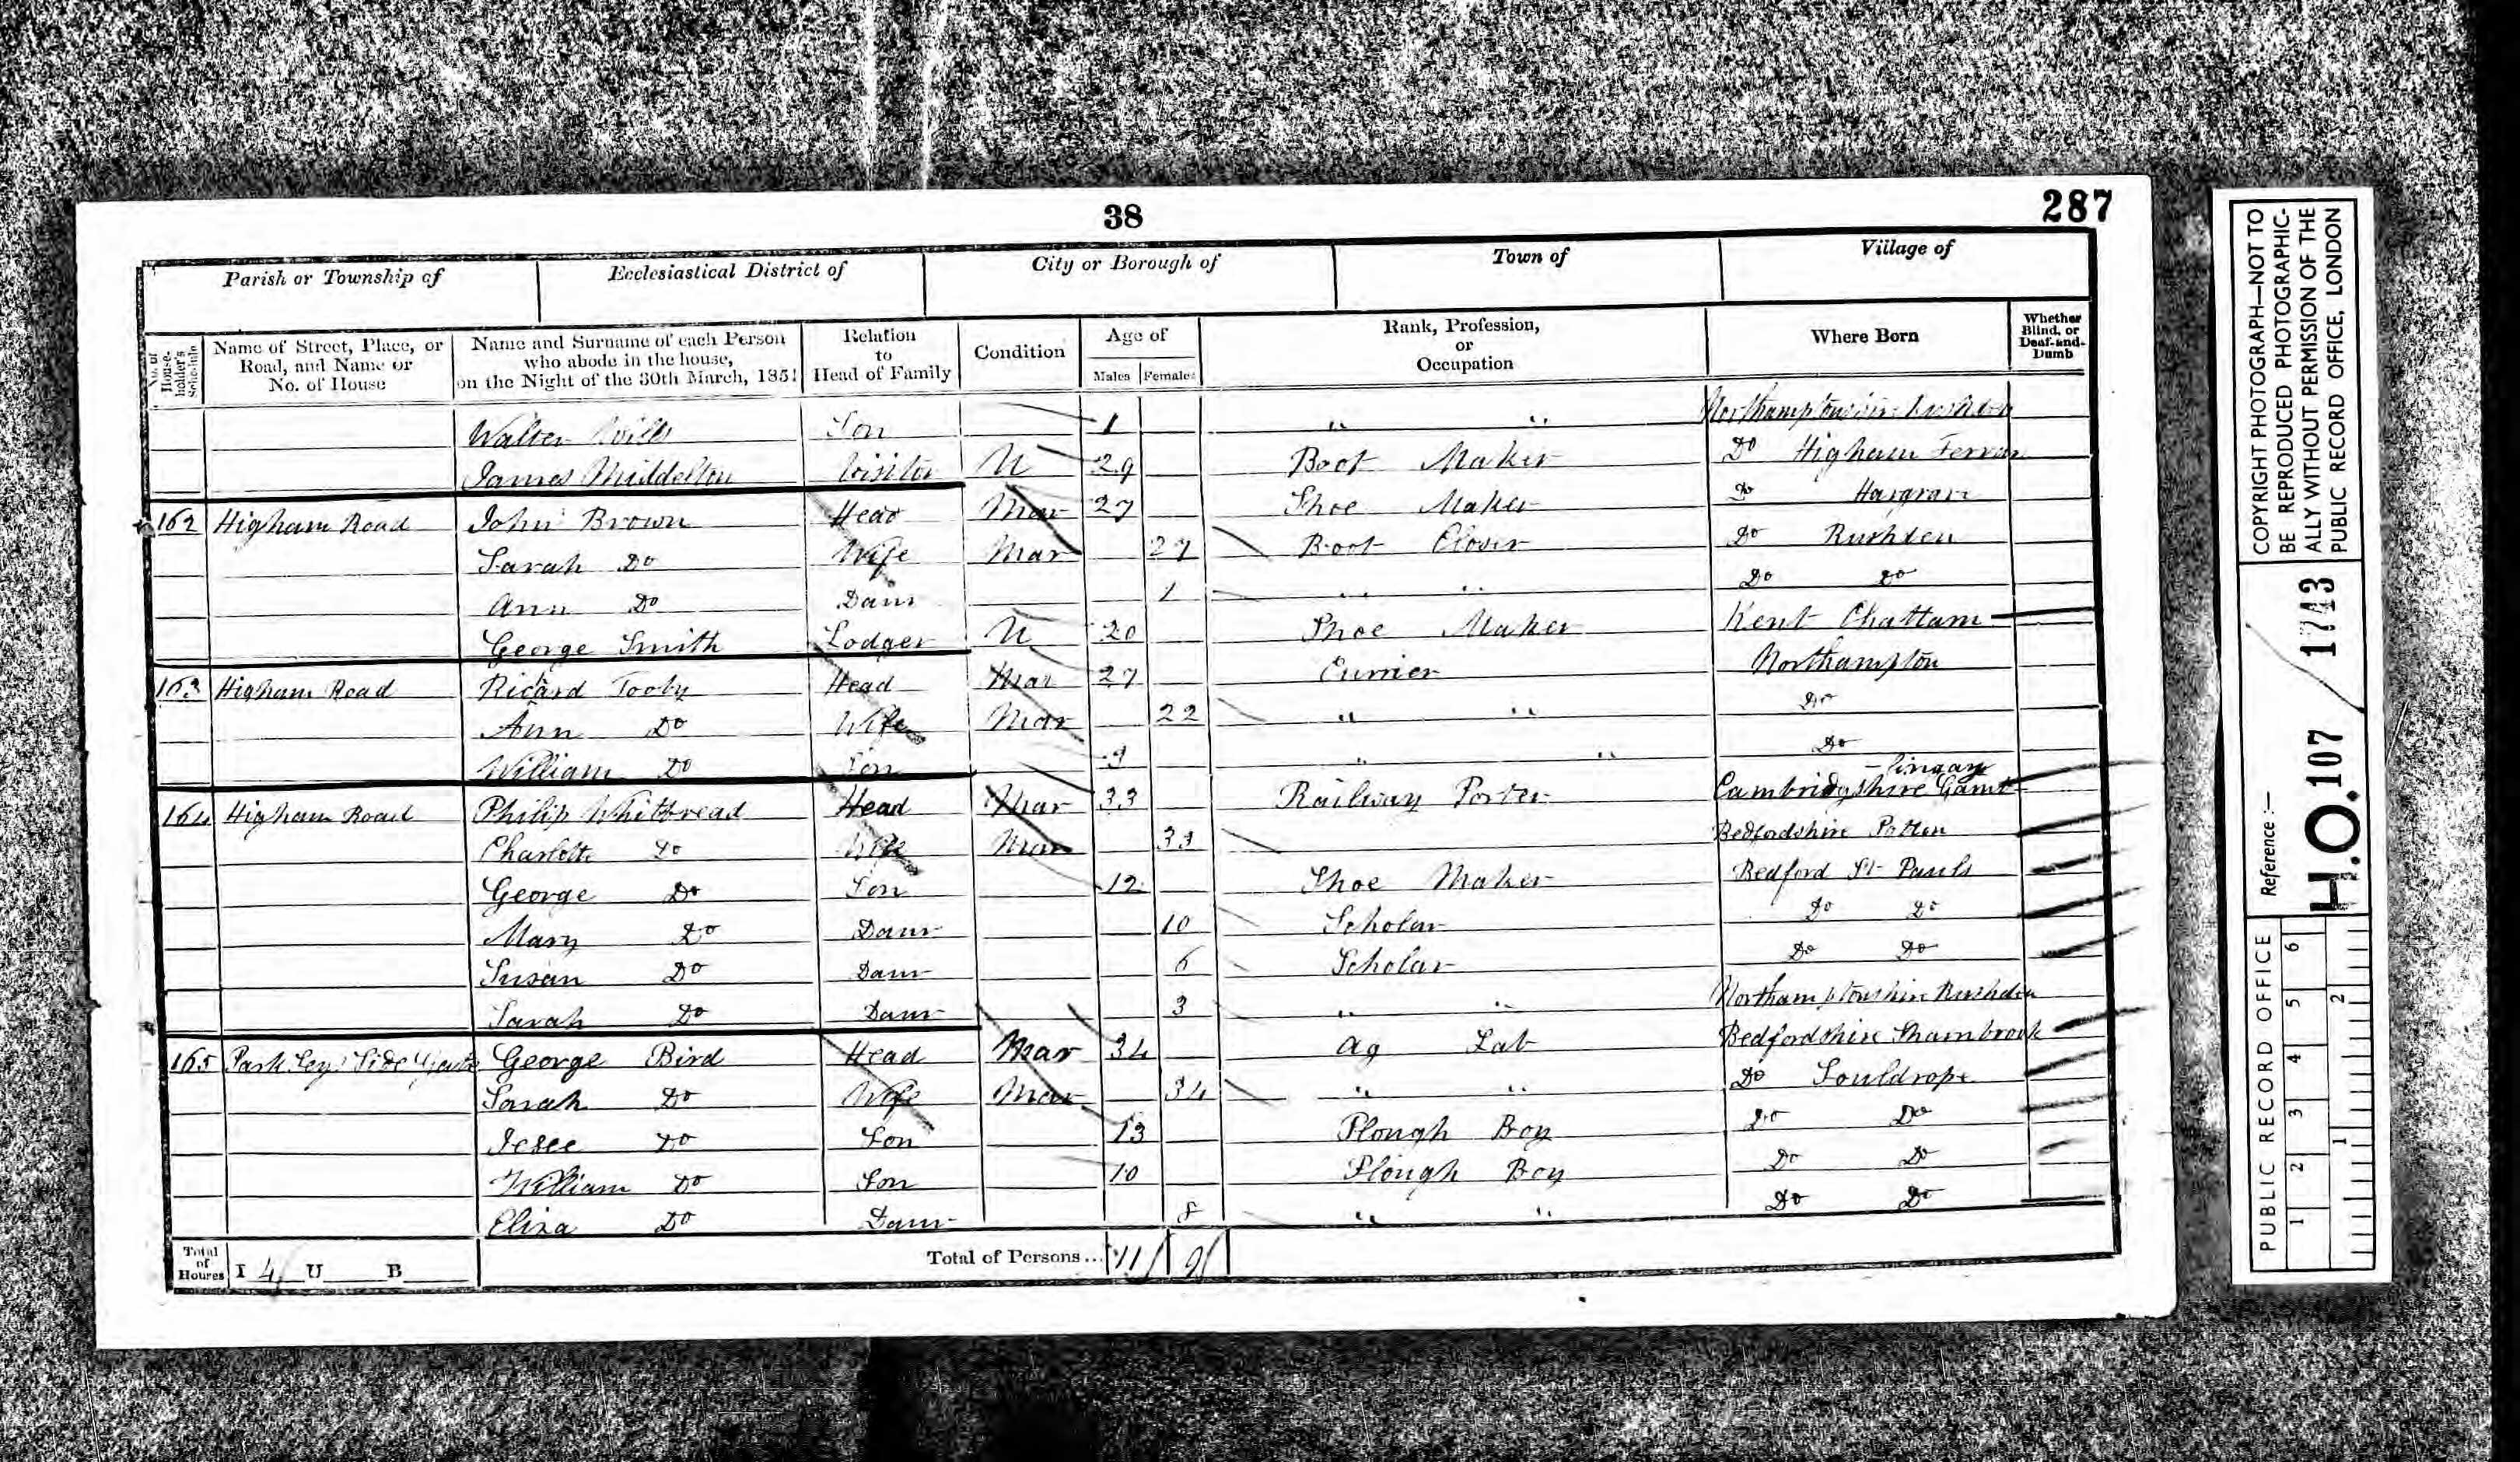 38
287
Parish or Township of Ecclesiastical District of City or Borough of Town of Village of
No. of House-holder's Schedule Name of Street, Place, or Road, and Name or No. of House Name and Surname of each Person who abode in the house, on the Night of the 30th March, 1851 Relation to Head of Family Condition Age of Males Females Rank, Profession, or Occupation Where Born Whether Blind, or Deaf-and-Dumb
Walter Wills Son 1 " " Northamptonshire Rushden
James Middelton Visitor U 29 Boot Maker Do Higham Ferrars
162 Higham Road John Brown Head Mar 27 Shoe Maker Do Hargrave
Sarah Do Wife Mar 27 Boot Closer Do Rushden
Ann Do Daur 1 " " Do Do
George Smith Lodger U 20 Shoe Maker Kent Chattam
163 Higham Road Ricard Tooby Head Mar 27 Currier Northampton
h
Ann Do Wife Mar 22 " " Do
William Do Son " " Do
164 Higham Road Philip Whitbread Head Mar 33 Railway Porter Cambridgshire Gamt
- lingay
Charlotte Do Wife Mar 33 Bedfordshire Potten
George Do Son 12 Shoe Maker Bedford St Pauls
Mary Do Daur 10 Scholar Do Do
Susan Do Daur 6 Scholar Do Do
Sarah Do Daur 3 " " Northamptonshire Rushden
165 Park George Bird Head Mar 34 Ag Lab Bedfordshire Sharnbrook
Sarah Do Wife Mar 34 " " Do Souldrope
Jesee Do Son 13 Plough Boy Do Do
William Do Son 10 Plough Boy Do Do
Eliza Do Daur 8 " " Do Do
Total of Houses I 4 U B Total of Persons... 11 9
COPYRIGHT PHOTOGRAPH—NOT TO
BE REPRODUCED PHOTOGRAPHIC-
ALLY WITHOUT PERMISSION OF THE
PUBLIC RECORD OFFICE, LONDON
Reference :—
H.O. 107 / 1743
PUBLIC RECORD OFFICE
1 2 3 4 5 6
1 2